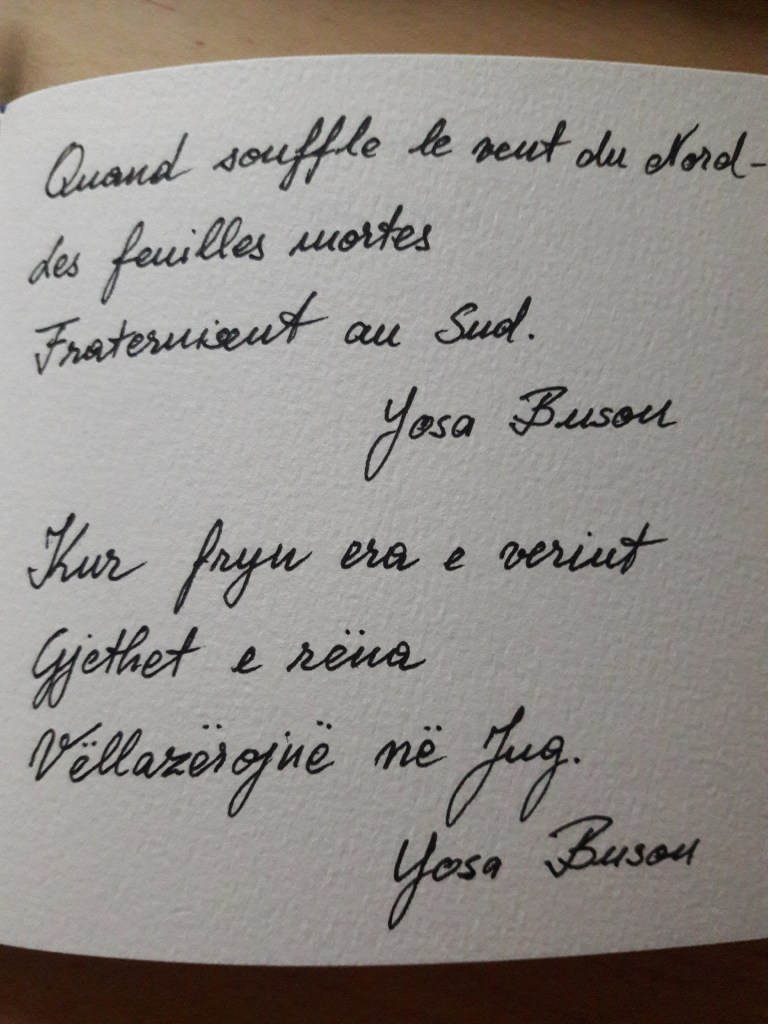 Quand souffle le vent du Nord-
Les feuilles mortes
Fraternisent au Sud.
Yosa Buson
Kur fryn era e veriut
Gjethet e rëna
Vëllazërojnë në Jug.
Yosa Buson